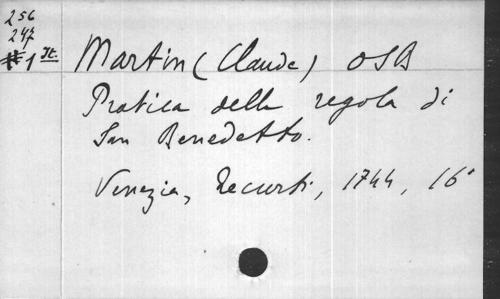 256
247
#1 It.
Martin (Claude) OSB
Pratica della regola di
San Benedetto.
Venezia, Recurti, 1744, 16°